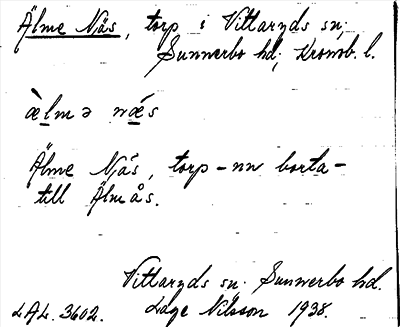 Älme Näs, torp i Vittaryds sn;
Sunnerbo hd; Kronob. l.
æ̀lmə nǽs
Älme Näs, torp - nu borta -
till Älmås.
Vittaryds sn. Sunnerbo hd.
LAL. 3602. Lage Nilsson 1938.